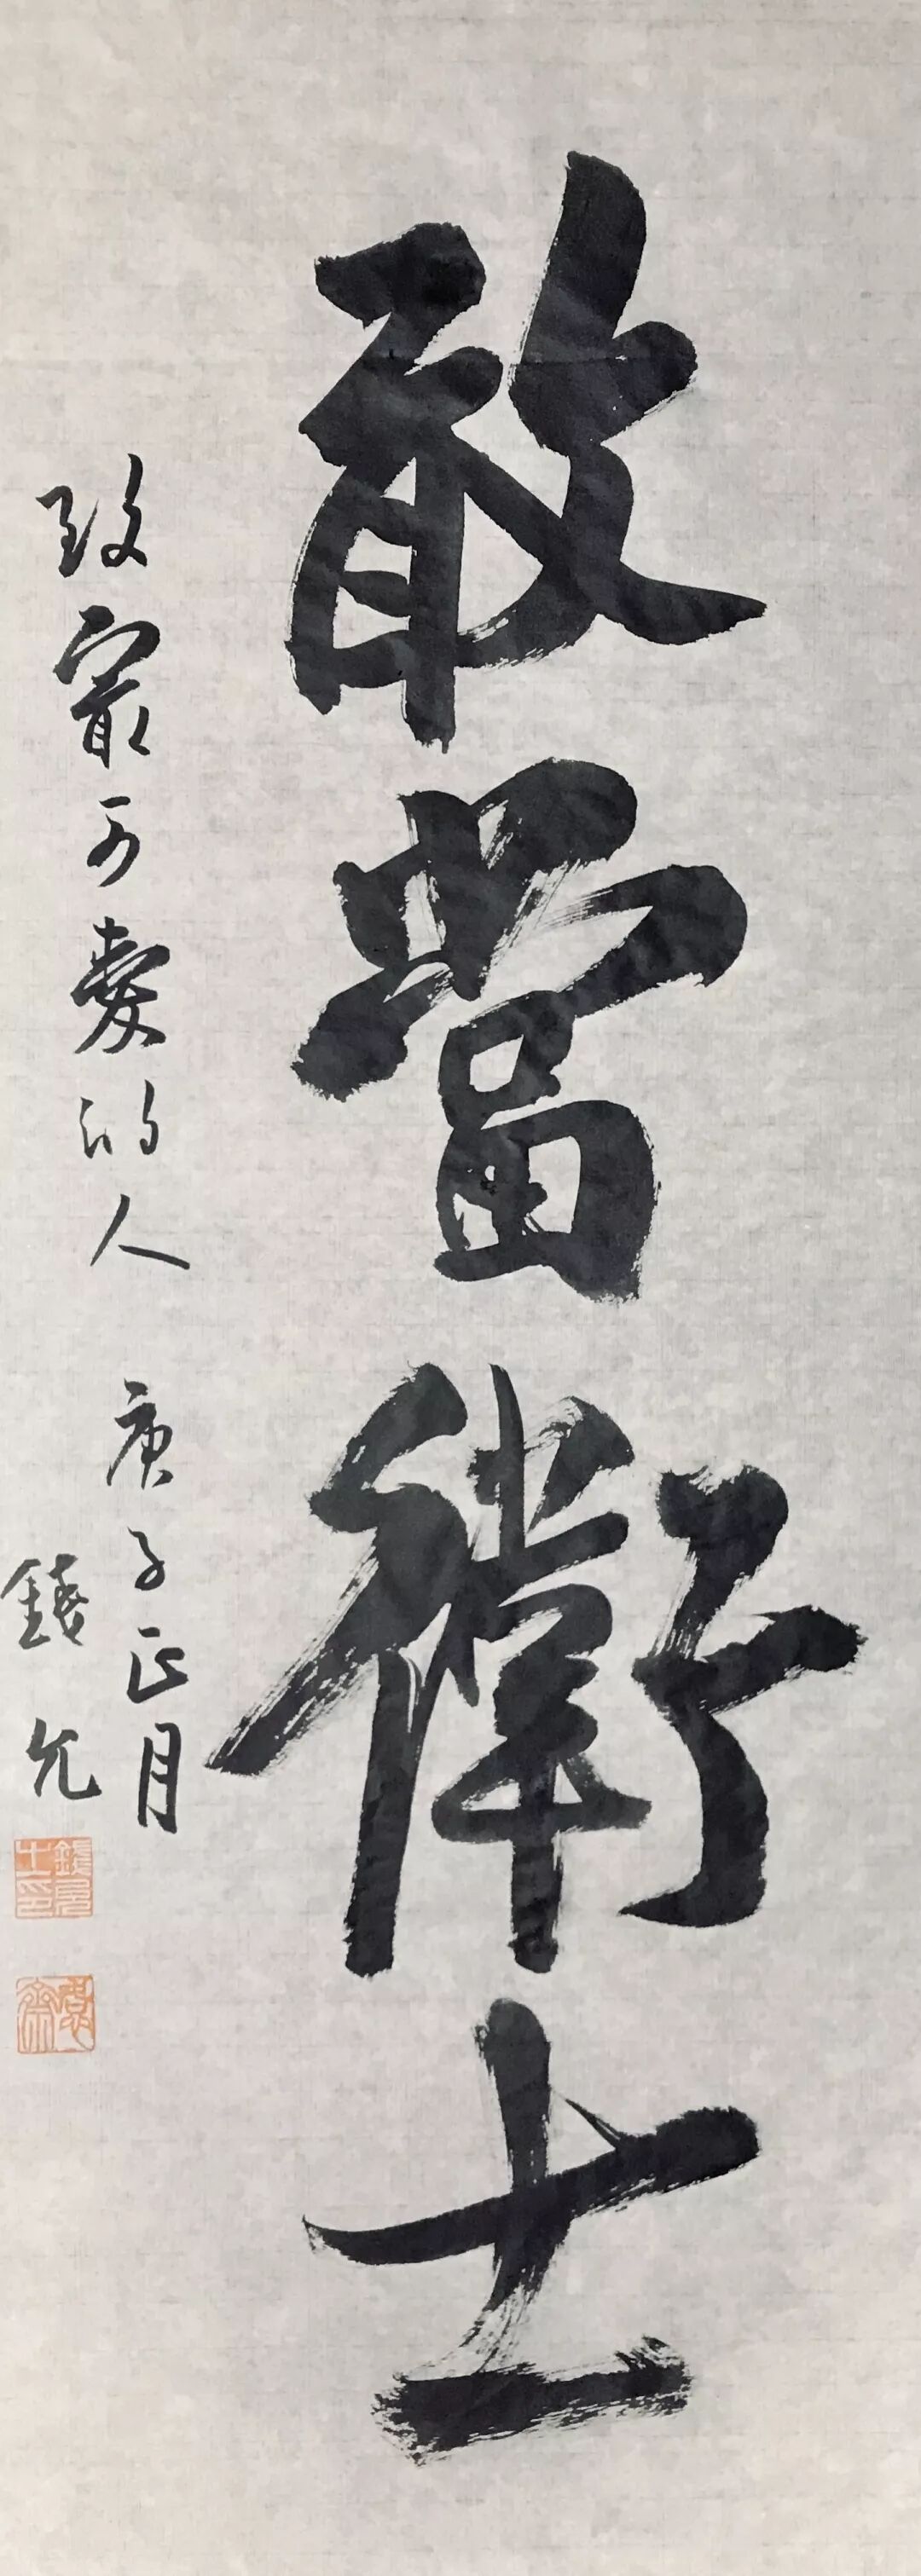 敢當衛士
致最可愛的人 庚子正月
錢允